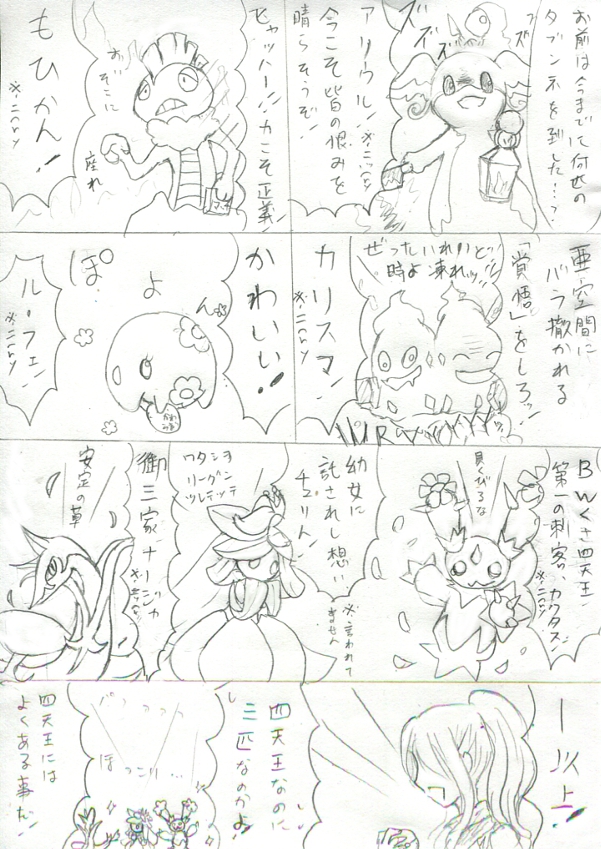 お前は今までに何匹の
タブンネを倒した…?
ズズズ
ズズ
アリウル!
※ニックネ
今こそ皆の恨みを
晴らそうぞ!
ヒャッハー!
力こそ正義!
おぞこに
座れ
もひかん!
※ニックネ
亜空間に
バラ撒かれる
「覚悟」をしろッ!
ぜったいれいどッ!
時よ凍れッ!
カリスマ!
※ニックネ
かわいい!
ん
よ
ぽ
ル・フェン
※ニックネ
BWくさ四天王
第一の刺客、カクタス!
※ニックネ
良くびろな
幼女に
託されし想い
チュリン!
※言われて
ません
ワタシヲ
リーグニ
ツレテッテ
御三家ナージャ
安定の草
ー以上!
四天王なのに
三匹なのかよ!
パァァァッ
ほっこり…
四天王には
よくある事だ!